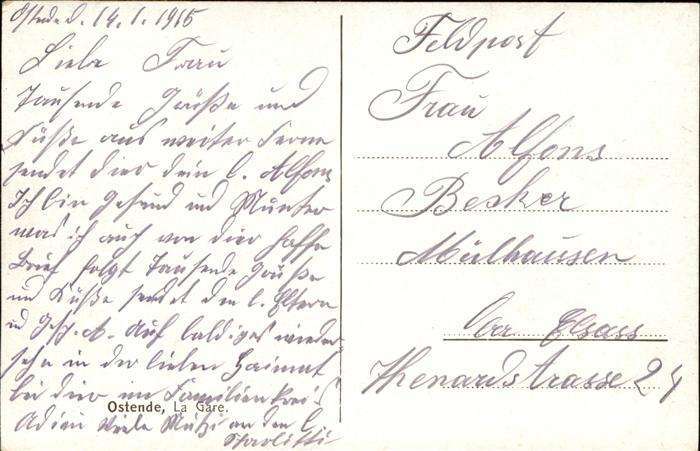 Ostende d. 14.1.1915
Liebe Frau
Tausende Grüße und
Küße aus weiter Ferne
sendet dier dein l. Alfons
Ich bin Gesund und Munter
was ich auch von dier hoffe
Brief folgt Tausende Grüße
und Küße sendet den l. Eltern
u Auf baldiges wieder
sehn in der lieben Haimat
bei dier im Familienkreis
Adieu viele an den l.
Feldpost
Frau
Alfons
Becker
Mülhausen
Ober Elsass
Thenardstrasse 24
Ostende, La Gare.